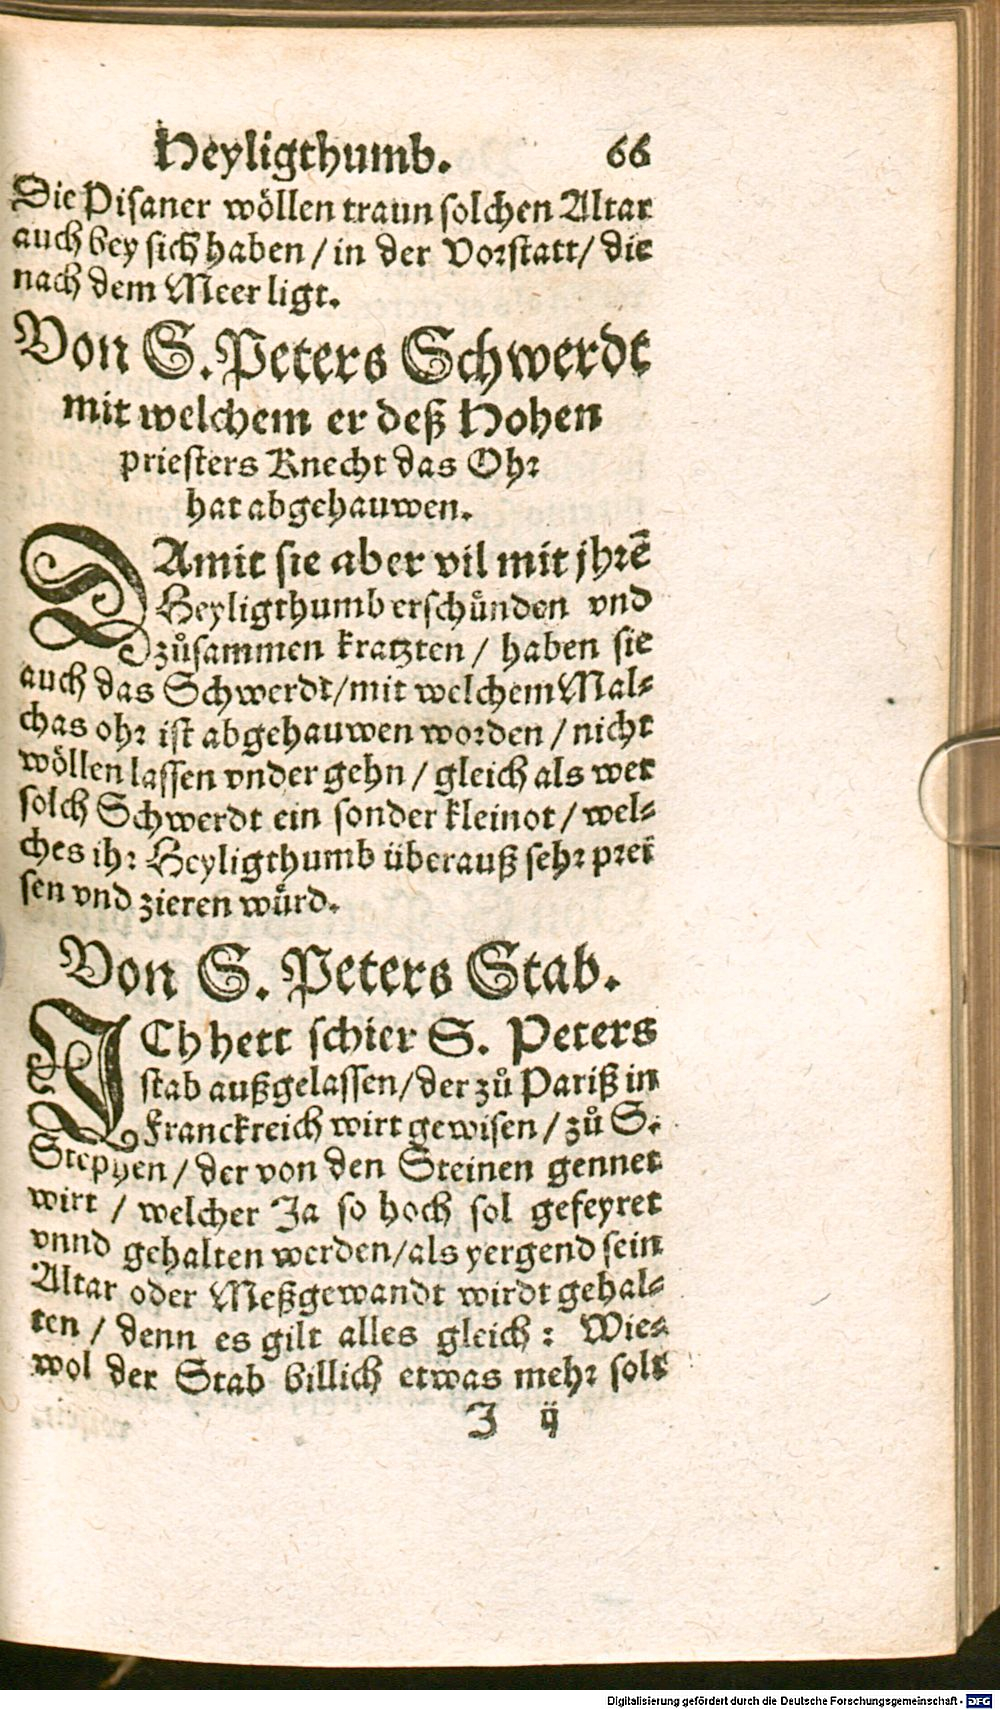 Heyligthumb. 66
Die Pisaner wöllen traun solchen Altar
auch bey sich haben / in der Vorstatt / die
nach dem Meer ligt.
Von S. Peters Schwerdt
mit welchem er deß Hohen
priesters Knecht das Ohr
hat abgehauwen.
DAmit sie aber vil mit jhrẽ
Heyligthumb erschünden vnd
zůsammen kratzten / haben sie
auch das Schwerdt / mit welchem Mal-
chas ohr ist abgehauwen worden / nicht
wöllen lassen vnder gehn / gleich als wer
solch Schwerdt ein sonder kleinot / wel-
ches ihr Heyligthumb überauß sehr prei
sen vnd zieren würd.
Von S. Peters Stab.
ICh hett schier S. Peters
stab außgelassen / der zů Pariß in
Franckreich wirt gewisen / zů S.
Stephen / der von den Steinen gennet
wirt / welcher Ja so hoch sol gefeyret
vnnd gehalten werden / als yergend sein
Altar oder Meßgewandt wirdt gehal-
ten / denn es gilt alles gleich : Wie-
wol der Stab billich etwas mehr solt
J ij
Digitalisierung gefördert durch die Deutsche Forschungsgemeinschaft - DFG